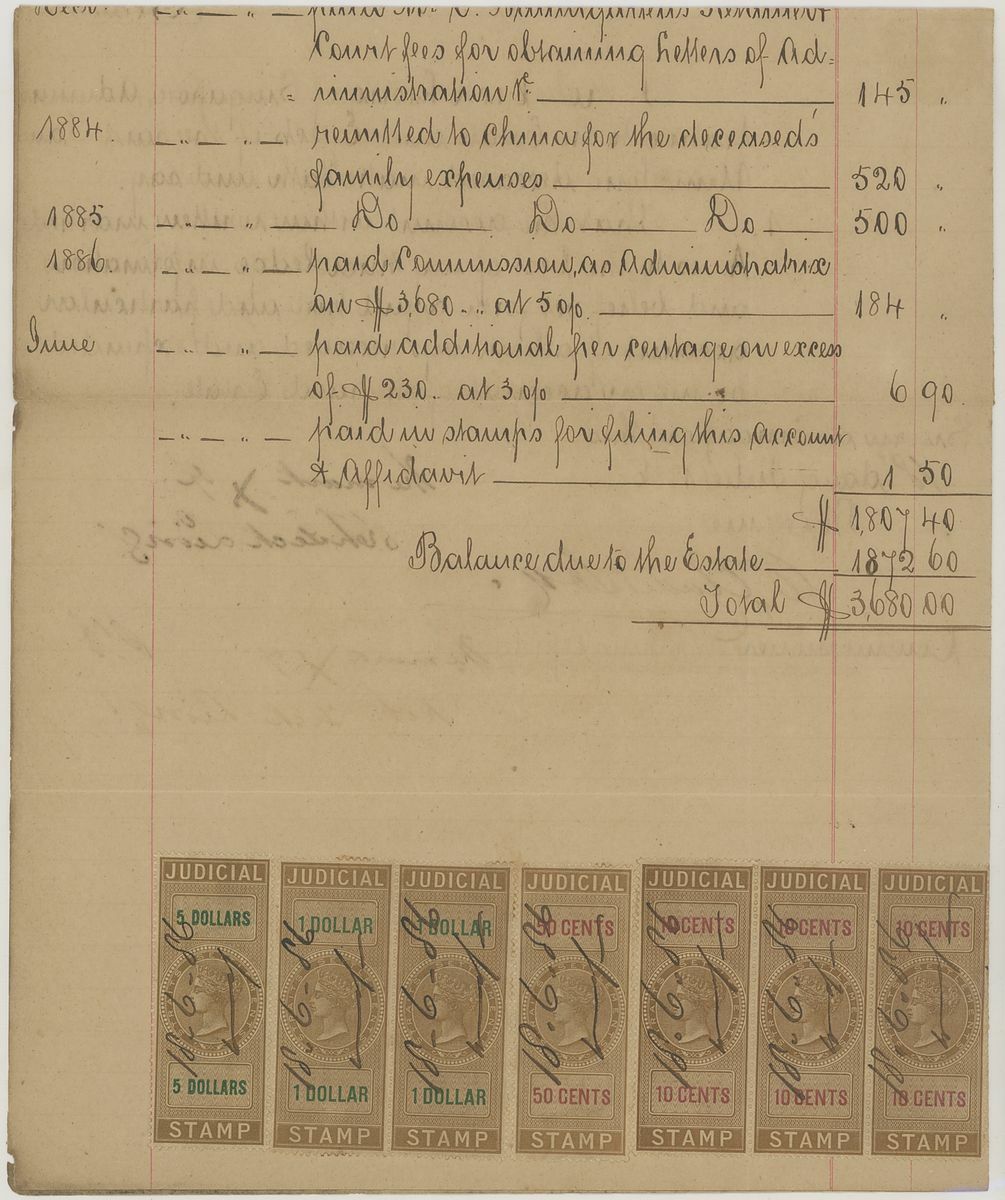 Court fees for obtaining Letters of Ad=
= ministration &c 145 "
1884. — " — " — remitted to China for the deceased's
family expenses 520 "
1885 — " — " — Do Do Do 500 "
1886. — " — " — paid Commission, as Administratrix
on $3,680 .. at 5 o/o 184 "
June — " — " — paid additional per centage on excess
of $230.. at 3 o/o 6 90.
— " — " — paid in stamps for filing this Account
& Affidavit 1 50
$ 1,807 40
Balance due to the Estate 1872 60
Total $ 3,680 00
JUDICIAL
5 DOLLARS
5 DOLLARS
STAMP
JUDICIAL
1 DOLLAR
1 DOLLAR
STAMP
JUDICIAL
1 DOLLAR
1 DOLLAR
STAMP
JUDICIAL
50 CENTS
50 CENTS
STAMP
JUDICIAL
10 CENTS
10 CENTS
STAMP
JUDICIAL
10 CENTS
10 CENTS
STAMP
JUDICIAL
10 CENTS
10 CENTS
STAMP